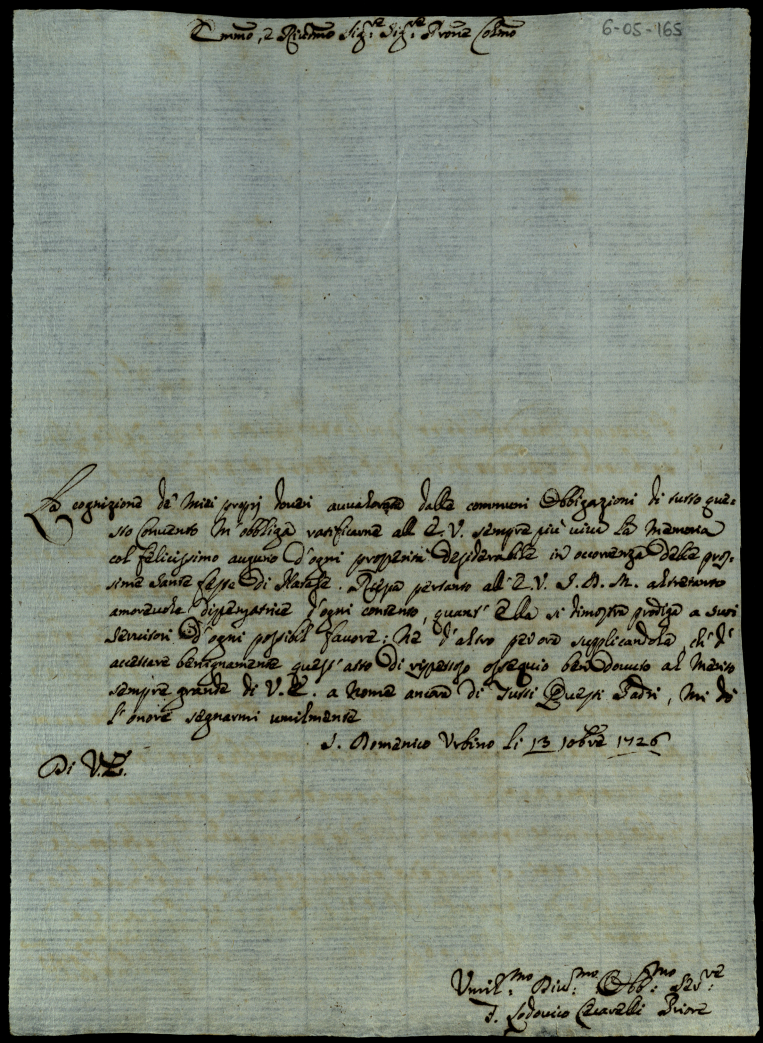 Emmo, e Rmo Sig.re Sig.re Prone Colmo
6-05-165
La cognizione de' Miei proprj doveri avvalorata dalle communi Obbligazioni di tutto que=
sto Convento m'obbliga ratificarne all'E.V. sempre più viva la Memoria
col felicissimo augurio d'ogni prosperità desiderabile in occorrenza delle pros=
sime Sante feste di Natale. Resta pertanto all'E.V. S.D.M. altretanto
amorevole dispensatrice d'ogni contento, quant'Ella si dimostra prodiga a suoi
servitori d'ogni possibil favore: Nè d'altro per ora supplicandola, ch'd'
accettare benignamente quest'atto di rispettoso ossequio ben dovuto al Merito
sempre grande di V.E. a Nome ancora di Tutti Questi Padri, mi dò
l'onore segnarmi umilmente
S. Domenico Urbino li 13 Xbre 1726
Di V.E.
Umil.mo Div.mo Obb.mo Ser.re
F. Lodovico Priore